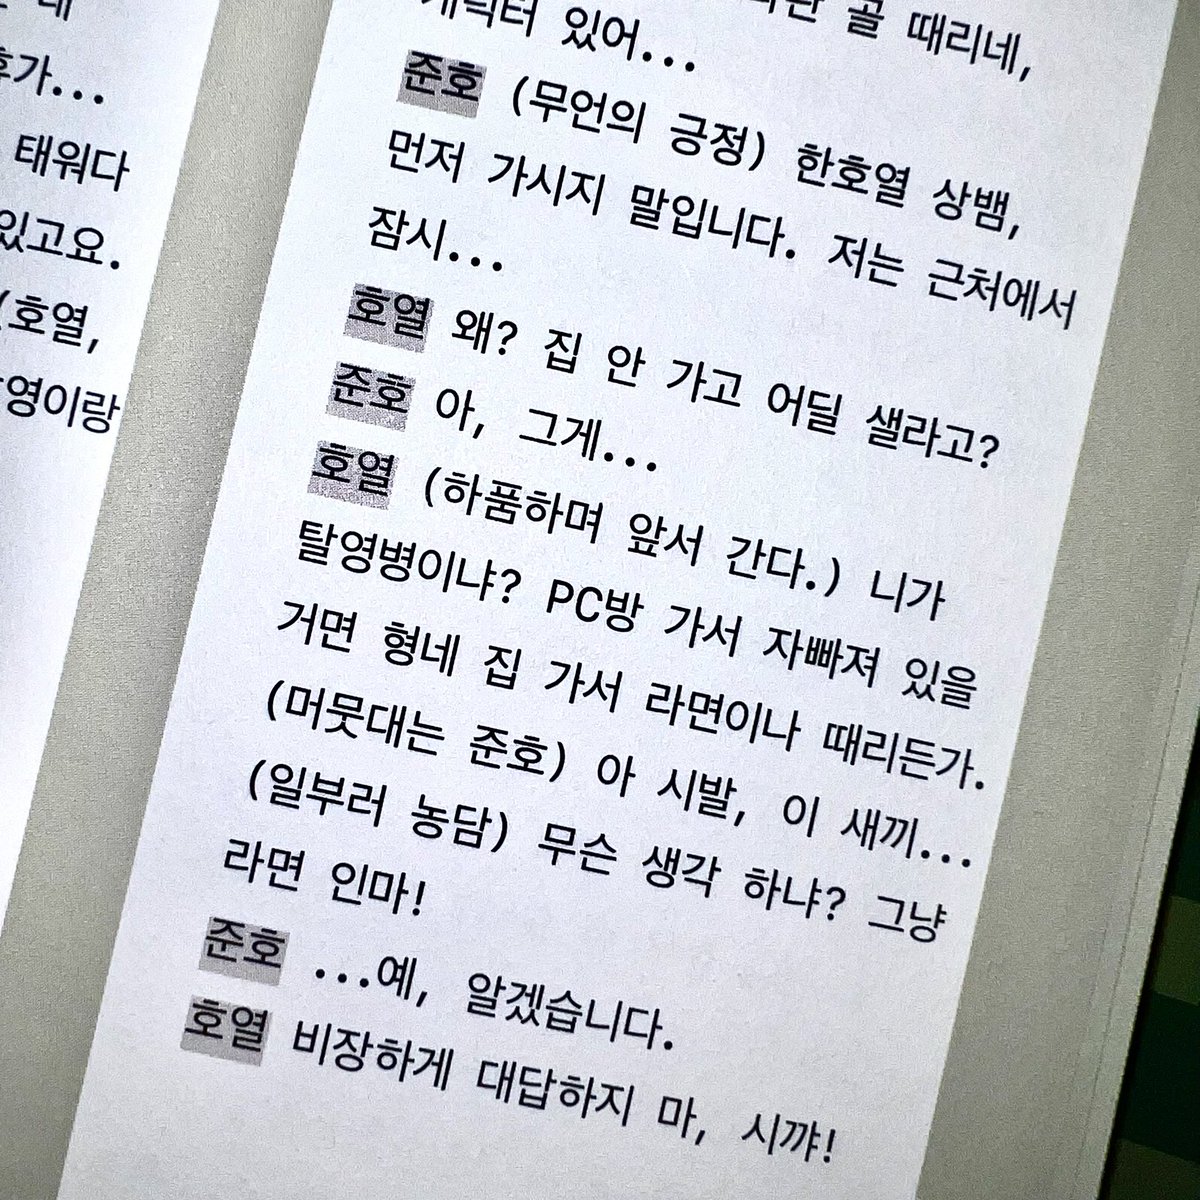 태워다
있고요.
(호열,
영이랑
골 때리네,
있어...
준호 (무언의 긍정) 한호열 상뱀,
먼저 가시지 말입니다. 저는 근처에서
잠시...
호열 왜? 집 안 가고 어딜 샐라고?
준호 아, 그게...
호열 (하품하며 앞서 간다.) 니가
탈영병이냐? PC방 가서 자빠져 있을
거면 형네 집 가서 라면이나 때리든가.
(머뭇대는 준호) 아 시발, 이 새끼...
(일부러 농담) 무슨 생각 하냐? 그냥
라면 인마!
준호 ...예, 알겠습니다.
호열 비장하게 대답하지 마, 시꺄!